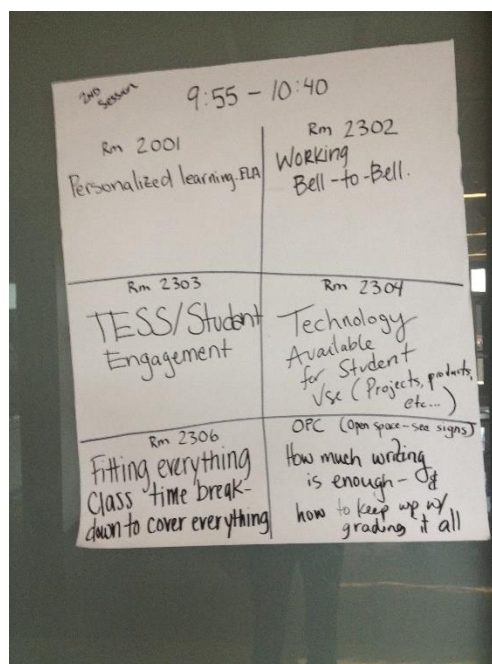 2ND
Session
9:55 - 10:40
Rm 2001
Personalized learning.FLA
Rm 2302
Working
Bell-to-Bell.
Rm 2303
TESS/Student
Engagement
Rm 2304
Technology
Available
for Student
Use (Projects, products,
etc...)
Rm 2306
Fitting everything
Class time break-
down to cover everything
OPC (Open space-see signs)
How much writing
is enough - &
how to keep up w/
grading it all